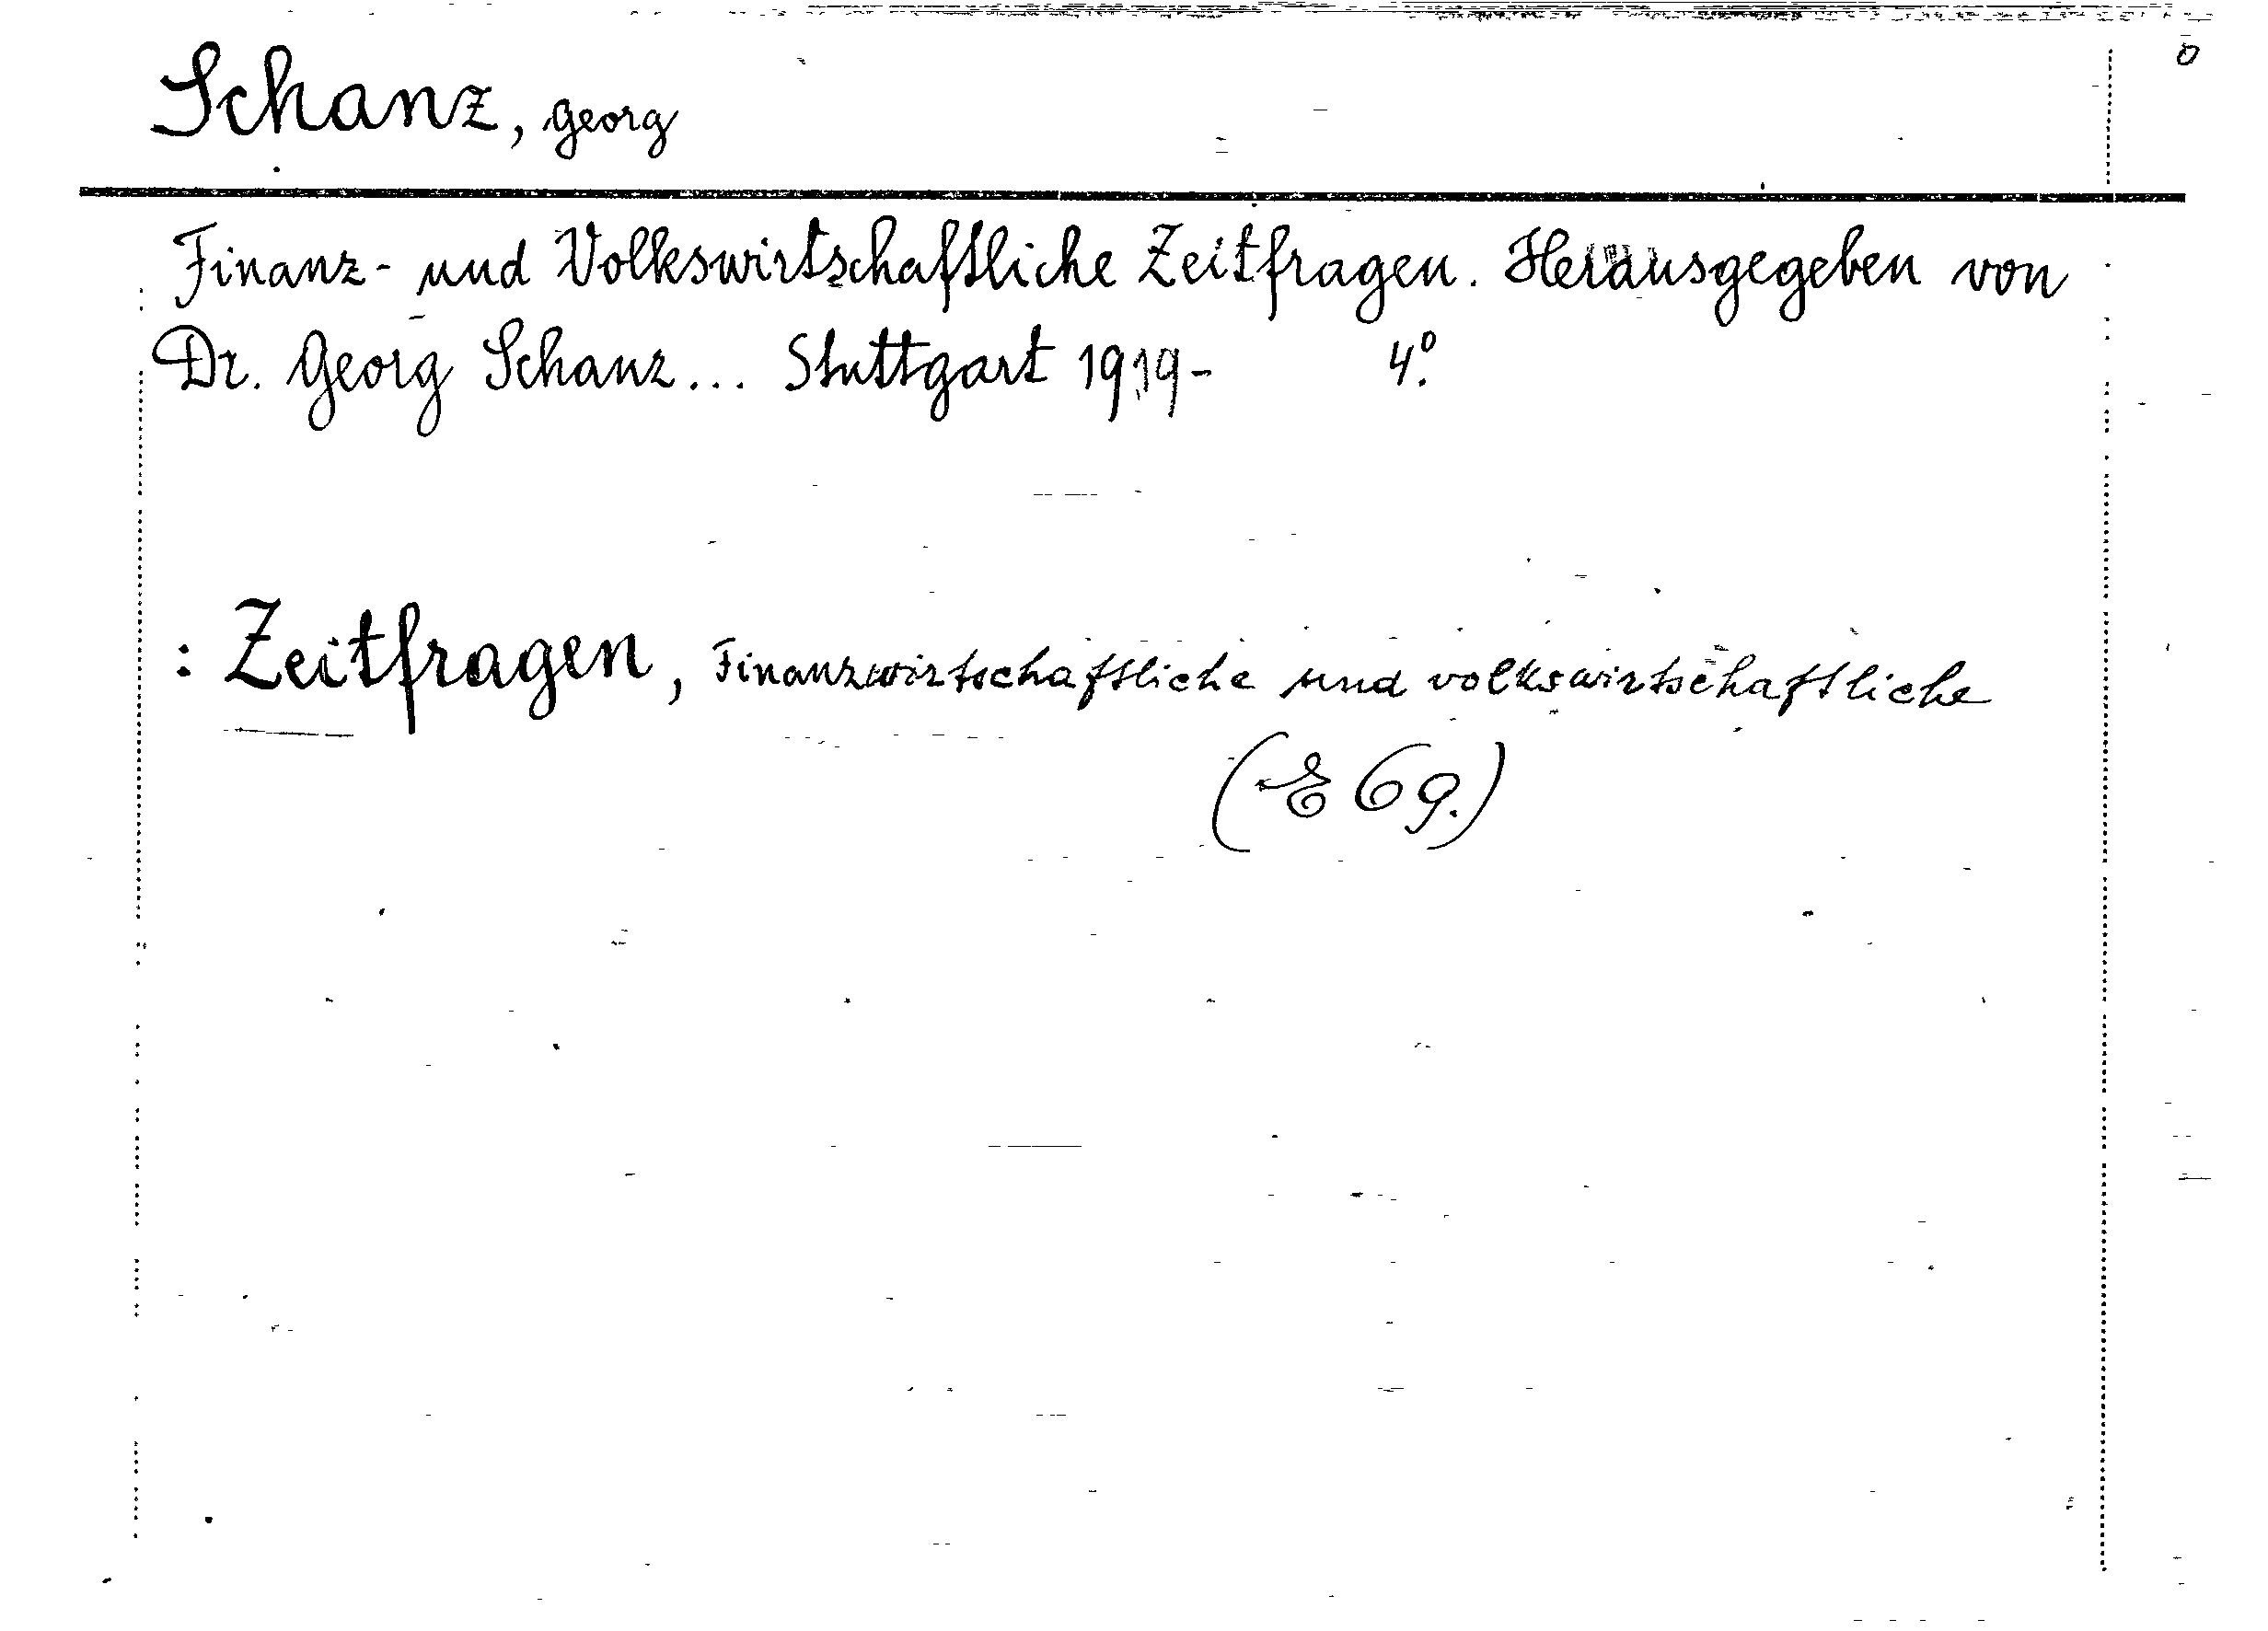 Schanz, Georg
Finanz- und Volkswirtschaftliche Zeitfragen. Herausgegeben von
Dr. Georg Schanz... Stuttgart 1919- 4º.
: Zeitfragen, Finanzwirtschaftliche und volkswirtschaftliche
(E 69.)